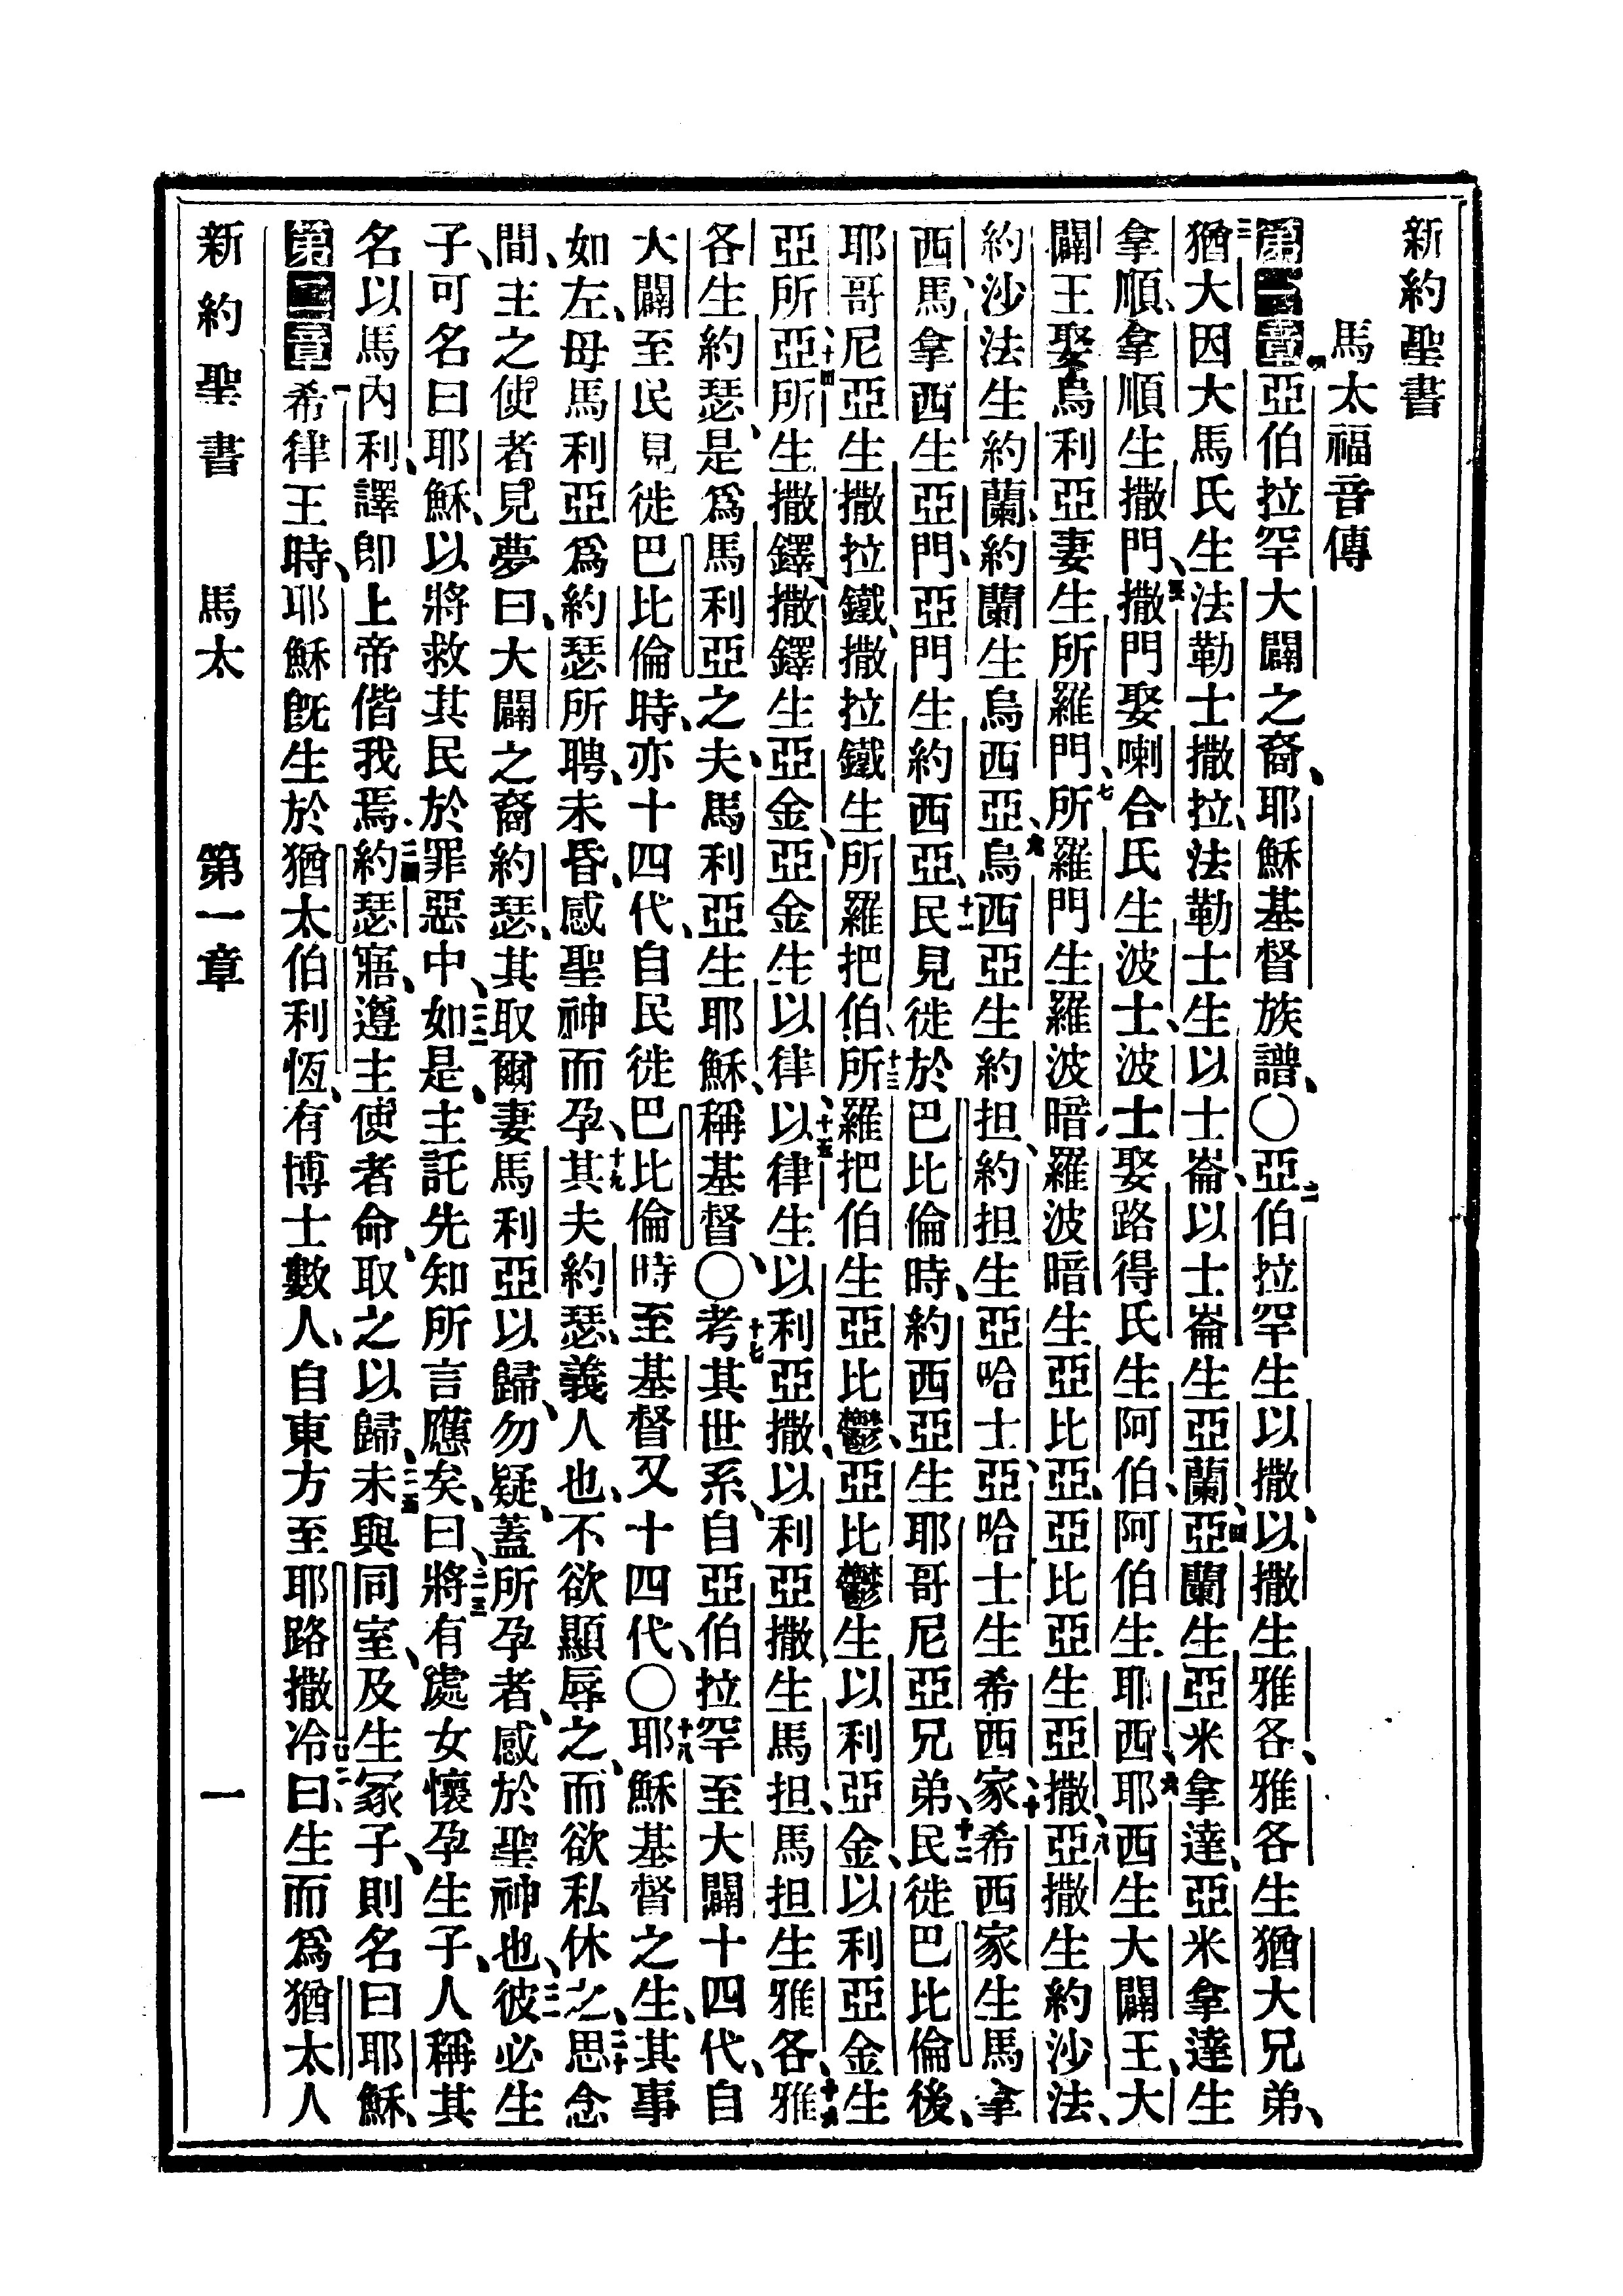 新約聖書
馬太福音傳
第一章亞伯拉罕大闢之裔、耶穌基督族譜、〇亞伯拉罕生以撒、以撒生雅各、雅各生猶大兄弟、
猶大因大馬氏生法勒士撒拉、法勒士生以士崙、以士崙生亞蘭、亞蘭生亞米拿達、亞米拿達生
拿順、拿順生撒門、撒門娶喇合氏生波士、波士娶路得氏生阿伯、阿伯生耶西、耶西生大闢王、大
闢王娶烏利亞妻生所羅門、所羅門生羅波暗、羅波暗生亞比亞、亞比亞生亞撒、亞撒生約沙法、
約沙法生約蘭、約蘭生烏西亞、烏西亞生約担、約担生亞哈士、亞哈士生希西家、希西家生馬拿
西、馬拿西生亞門、亞門生約西亞、民見徙於巴比倫時、約西亞生耶哥尼亞兄弟、民徙巴比倫後、
耶哥尼亞生撒拉鐵、撒拉鐵生所羅把伯、所羅把伯生亞比鬱、亞比鬱生以利亞金、以利亞金生
亞所、亞所生撒鐸、撒鐸生亞金、亞金生以律、以律生以利亞撒、以利亞撒生馬担、馬担生雅各、雅
各生約瑟、是爲馬利亞之夫、馬利亞生耶穌、稱基督、〇考其世系、自亞伯拉罕至大闢十四代、自
大闢至民見徙巴比倫時、亦十四代、自民徙巴比倫時至基督又十四代、〇耶穌基督之生、其事
如左、母馬利亞爲約瑟所聘、未昏、感聖神而孕、其夫約瑟、義人也、不欲顯辱之、而欲私休之、思念
間、主之使者見夢曰、大闢之裔約瑟、其取爾妻馬利亞以歸、勿疑、蓋所孕者、感於聖神也、彼必生
子、可名曰耶穌、以將救其民於罪惡中、如是、主託先知所言應矣、曰、將有處女懷孕生子、人稱其
名以馬內利、譯卽上帝偕我焉、約瑟寤、遵主使者命、取之以歸、未與同室、及生冢子、則名曰耶穌、
第二章希律王時、耶穌旣生於猶太伯利恆、有博士數人、自東方至耶路撒冷曰、生而爲猶太人
新約聖書 馬太 第一章 一